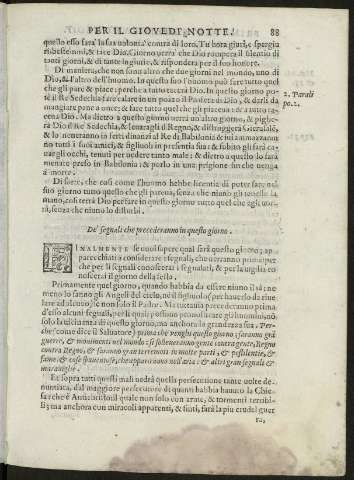 PER IL GIOVEDI NOTTE. 88
questo esso farà la sua volontà contra di loro. Tu hora giuri, e spergiu
ri bestemmi, & ire Dio. Giorno verrà che Dio romperà il silentio di
tanti giorni, & di tante ingiurie, & risponderà per il suo honore.
Di maniera, che non sono altro che due giorni nel mondo, uno di
Dio, & l'altro dell'huomo. In questo suo l'huomo può fare tutto quel
che gli pare & piace: perche a tutto tacerà Dio. In questo giorno po
tè il Re Sedechia far calare in un pozzo il Profeta di Dio, & darli da
mangiare pane a once; & fare tutto quel che gli piaceua: & a tutto ta
ceua Dio. Ma dietro a questo giorno verrà un'altro giorno, & piglie
rà Dio il Re Sedechia, & leueragli il Regno, & distruggerà Gierusalẽ,
& lo meneranno in ferri dinanzi al Re di Babilonia & iui ammazzaran
no tutti i suoi amici, & figliuoli in presentia sua: & subito gli farà ca
uar gli occhi, tenuti per uedere tanto male: & dietro a questo lo farà
menare preso in Babilonia: & posto in una prigione finche uenga
a morte.
2. Parali
po. 2.
Di sorte, che cosi come l'huomo hebbe licentia di poter fare nel
suo giorno tutto quello che gli pareua, senza che niuno gli tenesse la
mano, cosi terrà Dio per fare in questo giorno tutto quel che egli uor
rà, senza che niuno lo disturbi.
De' segnali che precederanno in questo giorno.
FINALMENTE se uuoi sapere qual sarà questo giorno; ap
parecchiati a considerare i segnali, che uerranno prima: per
che per li segnali conoscerai i segnalati, & per la uigilia co
noscerai il giorno della festa.
Primamente quel giorno, quando habbia da essere niuno il sà: ne
meno lo sanno gli Angeli del cielo, nè il figliuolo (per hauerlo da riue
lare ad alcuno) se non solo il Padre. Ma tuttauia precederanno prima
d'esso alcuni segnali, per li quali possono pronosticare gli huomini, nõ
solo la uicinanza di questo giorno, ma anchora la grandezza sua. Per-
che (come dice il Saluatore) prima che uenghi questo giorno; saranno grã
guerre, & mouimenti nel mondo: si solleueranno gente contra gente, Regno
contra Regno, & saranno gran terremoti in molte parti, & pestilentie, &
fame, & cose spauentose, che appariranno nell'aria: & altri gran segnali &
marauiglie.
Et sopra tutti questi mali uedrà quella persecutione tante uolte de-
nuntiata, dal maggiore persecutore di quanti habbia hauuto la Chie-
sa: che è Antichristo: il quale non solo con arme, & tormenti terribi-
li; ma anchora con miracoli apparenti, & finti, farà la piu crudel guer
ra,